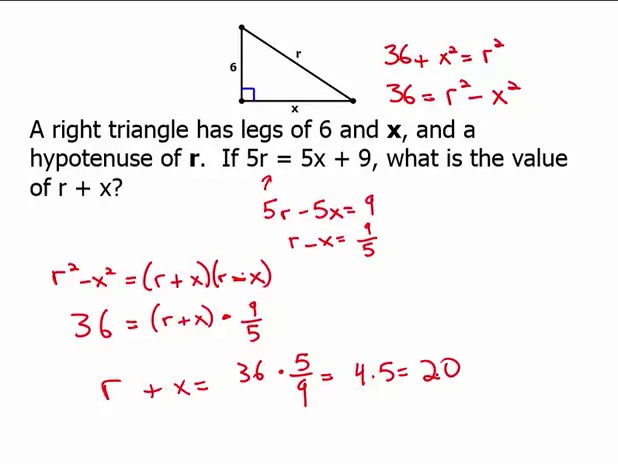 6
r
x
36 + x² = r²
36 = r² - x²
A right triangle has legs of 6 and x, and a
hypotenuse of r. If 5r = 5x + 9, what is the value
of r + x?
↑
5r - 5x = 9
r - x = 9/5
r² - x² = (r + x)(r - x)
36 = (r + x) · 9/5
r + x = 36 · 5/9 = 4.5 = 20